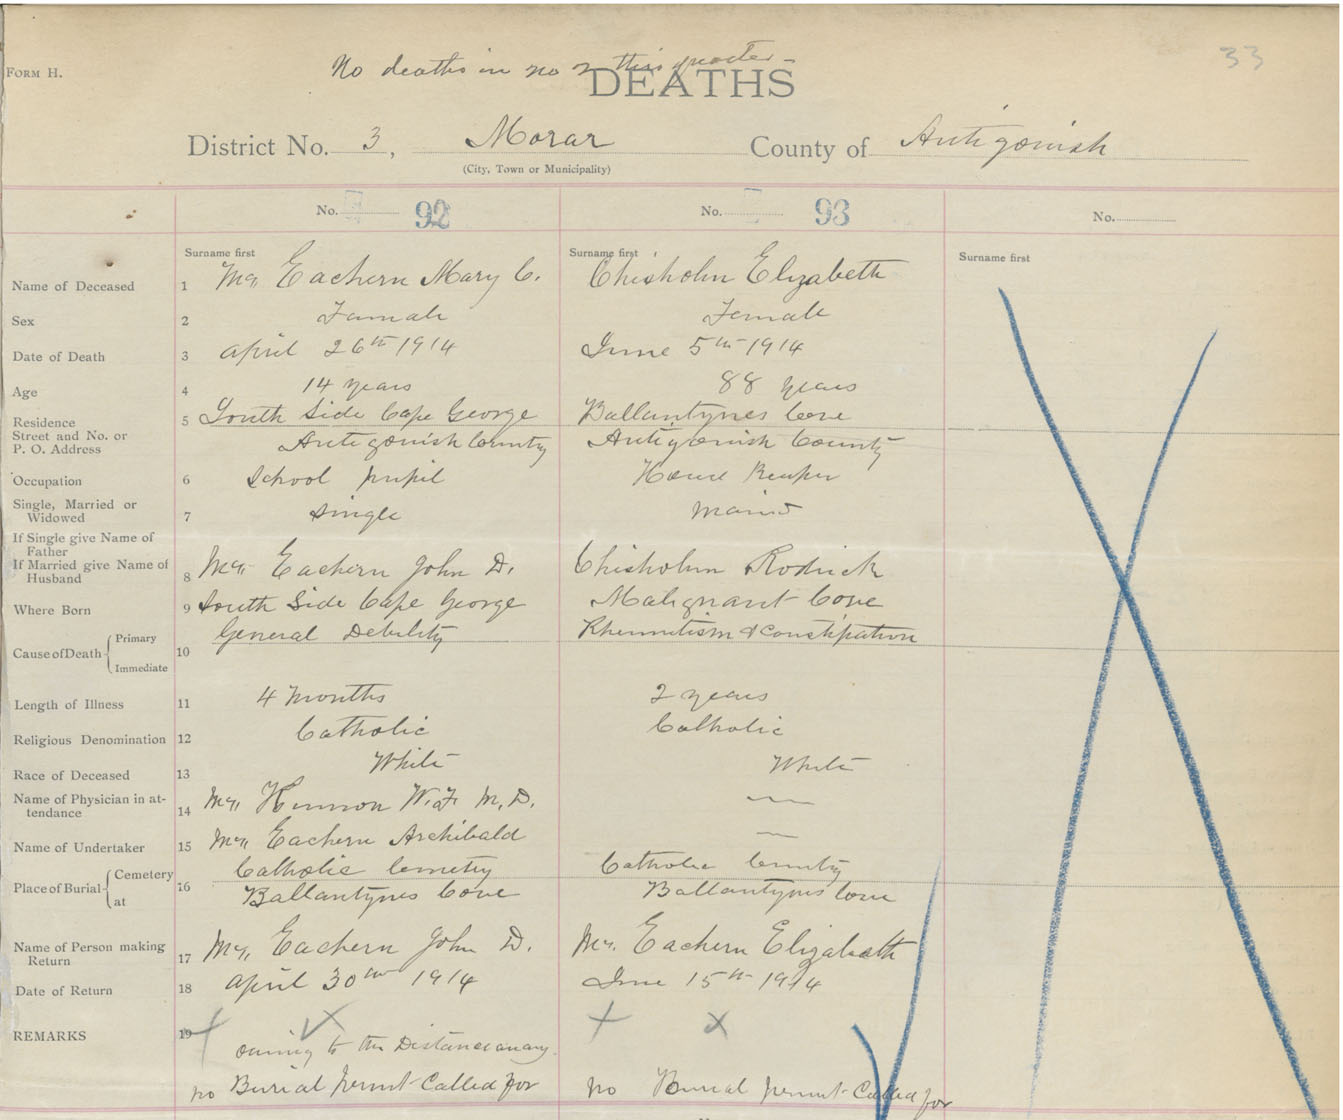 33
No deaths in no 2 this quarter
FORM H.
DEATHS
District No. 3, Morar County of Antigonish
(City, Town or Municipality)
No. 92 No. 93 No.
Surname first Surname first Surname first
Name of Deceased 1 Mc Eachern Mary C. Chisholm Elizabeth
Sex 2 Female Female
Date of Death 3 April 26th 1914 June 5th 1914
Age 4 14 years 88 years
Residence 5 South Side Cape George Ballantynes Cove
Street and No. or
P. O. Address Antigonish County Antigonish County
Occupation 6 School pupil House Keeper
Single, Married or
Widowed 7 Single
If Single give Name of
Father
If Married give Name of
Husband 8 Mc Eachern John D. Chisholm Rodrick
Where Born 9 South Side Cape George Malignant Cove
Cause of Death Primary 10 General Debility Rheumetism & Constipation
Immediate
Length of Illness 11 4 Months 2 years
Religious Denomination 12 Catholic Catholic
Race of Deceased 13 White White
Name of Physician in at-
tendance 14 Mc Kinnon W. F. M. D. —
Name of Undertaker 15 Mc Eachern Archibald —
Place of Burial Cemetery 16 Catholic Cemetry Catholic Cemetry
at Ballantynes Cove Ballantynes Cove
Name of Person making
Return 17 Mc Eachern John D. Mc. Eachern Elizabeth
Date of Return 18 April 30th 1914 June 15th 1914
REMARKS 19 owing to the Distance away
no Burial permit Called for no Burial permit Called for